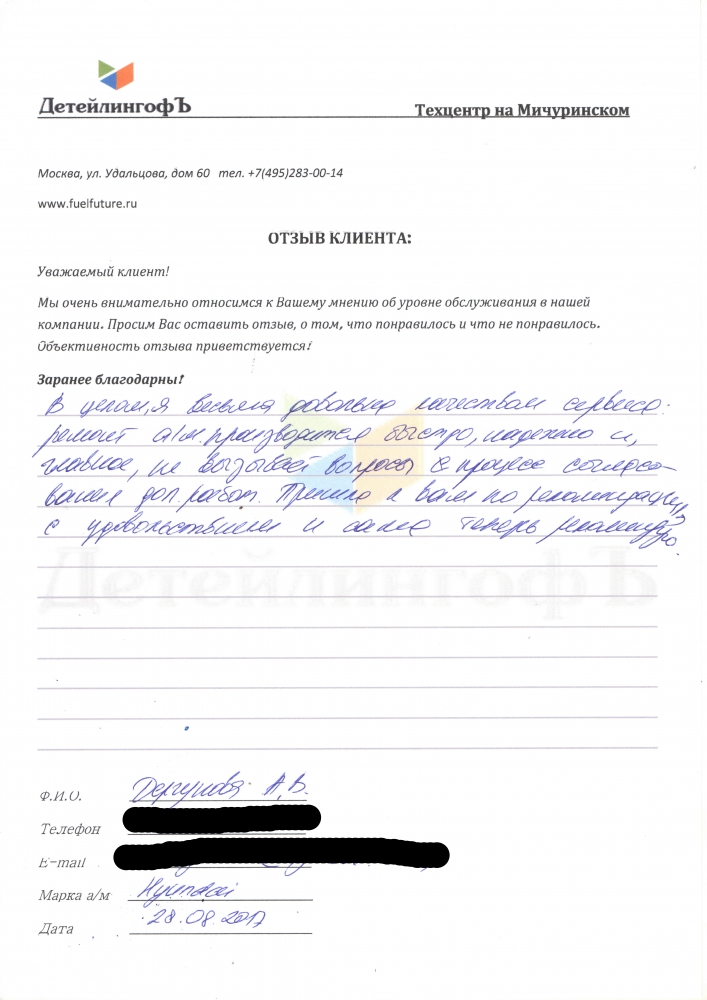 ДетейлингофЪ
Техцентр на Мичуринском
Москва, ул. Удальцова, дом 60 тел. +7(495)283-00-14
www.fuelfuture.ru
ОТЗЫВ КЛИЕНТА:
Уважаемый клиент!
Мы очень внимательно относимся к Вашему мнению об уровне обслуживания в нашей
компании. Просим Вас оставить отзыв, о том, что понравилось и что не понравилось.
Объективность отзыва приветствуется!
Заранее благодарны!
В целом, я весьма довольна качеством сервиса:
ремонт а/м производится быстро, надежно и,
главное, не вызывает вопросы в процессе согласо-
вания доп. работ. Пришла к вам по рекомендации,
с удовольствием и сама теперь рекомендую.
ДетейлингофЪ
Ф.И.О. Дергунова А.В.
Телефон
E-mail
Марка а/м Hyundai
Дата 28.08.2017